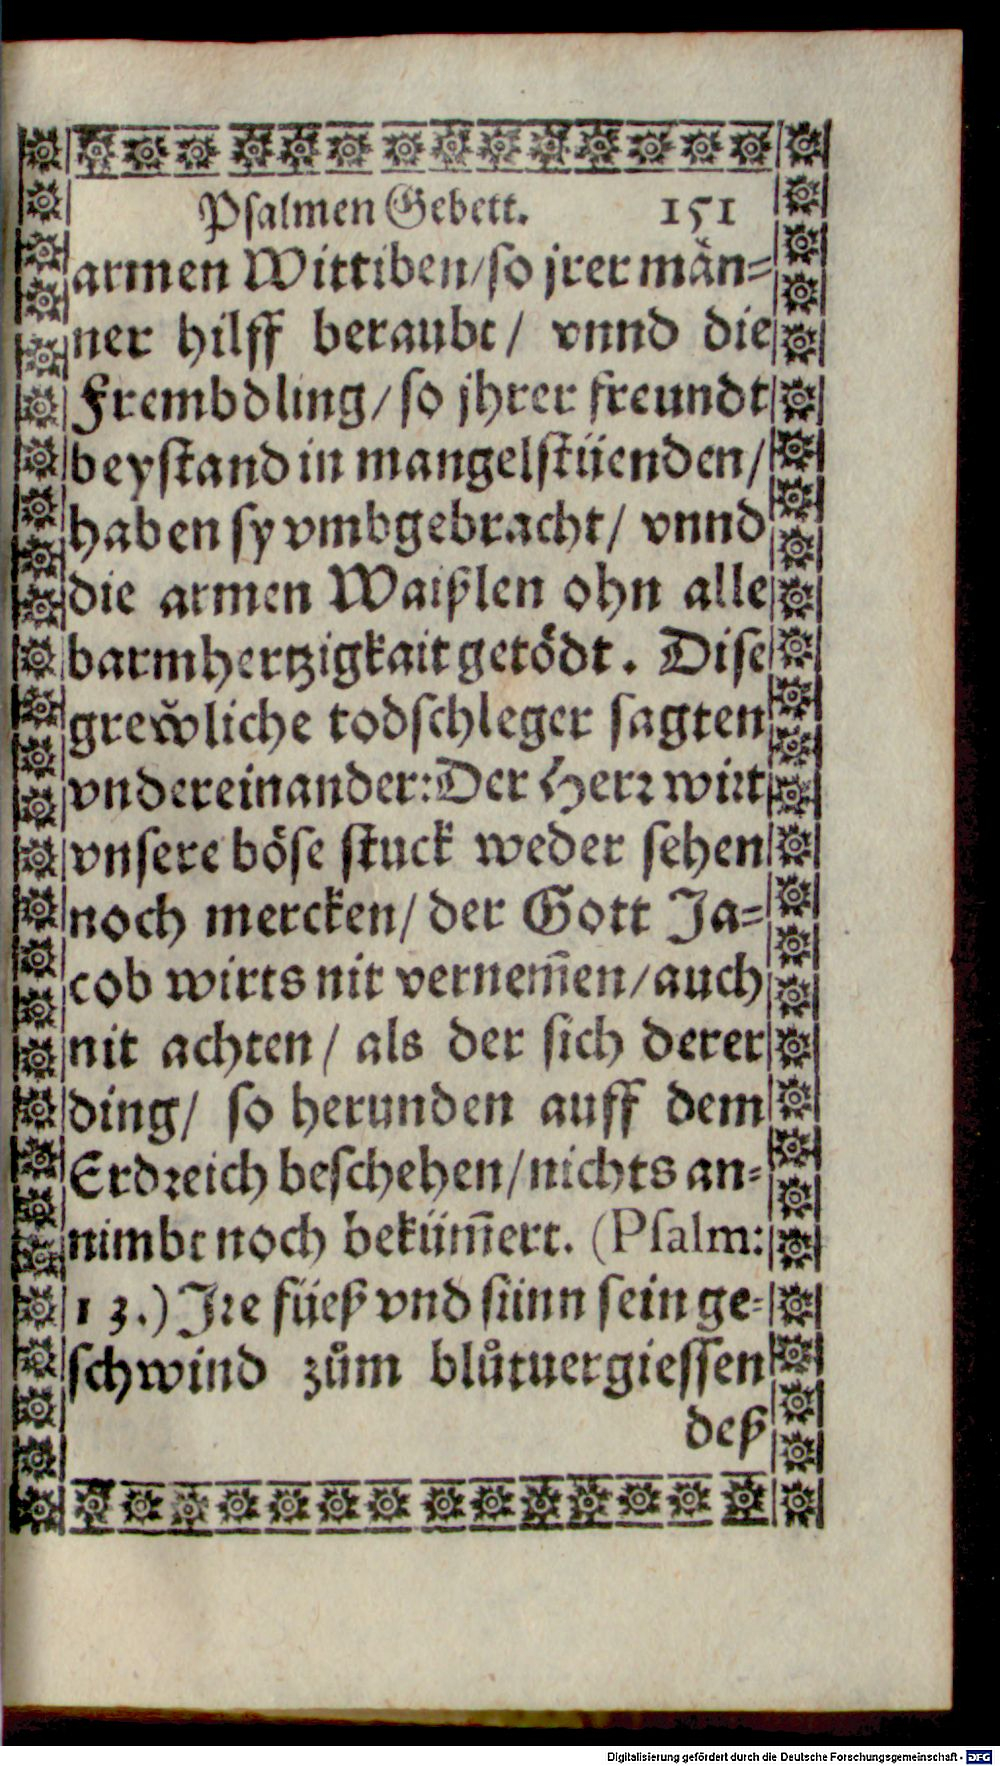 Psalmen Gebett. 151
armen Wittiben/so jrer män-
ner hilff beraubt/ vnnd die
Frembdling/so jhrer freundt
beystand in mangel stüenden/
haben sy vmbgebracht/ vnnd
die armen Waißlen ohn alle
barmhertzigkait getödt. Dise
grew̆liche todschleger sagten
vndereinander: Der Herr wirt
vnsere böse stuck weder sehen
noch mercken/ der Gott Ja-
cob wirts nit vernem̃en/auch
nit achten/ als der sich derer
ding/ so herunden auff dem
Erdreich beschehen/nichts an-
nimbt noch beküm̃ert. (Psalm:
13.) Jre füeß vnd siinn sein ge-
schwind zům blůtuergiessen
deß
Digitalisierung gefördert durch die Deutsche Forschungsgemeinschaft - DFG